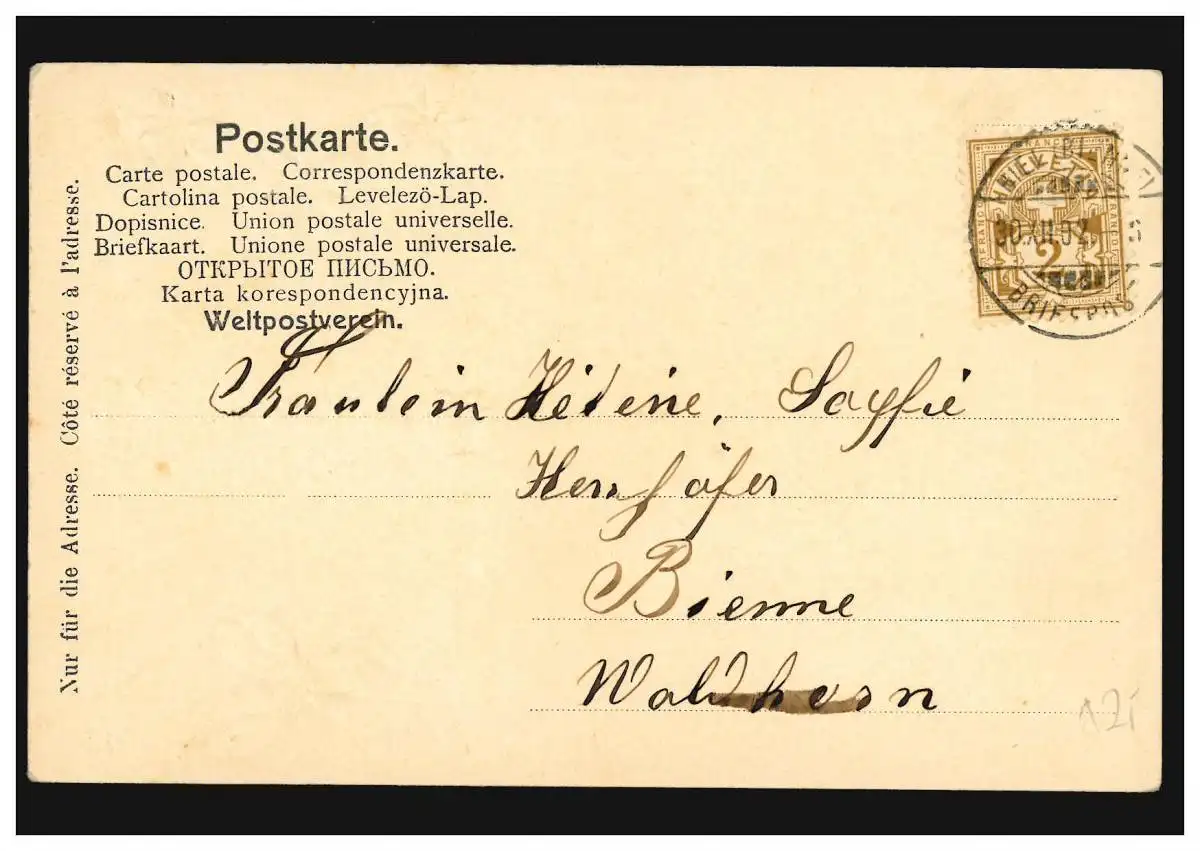 Postkarte.
Carte postale. Correspondenzkarte.
Cartolina postale. Levelezö-Lap.
Dopisnice. Union postale universelle.
Briefkaart. Unione postale universale.
ОТКРЫТОЕ ПИСЬМО.
Karta korespondencyjna.
Weltpostverein.
Nur für die Adresse. Côté réservé à l'adresse.
FRANCO
FRANCO
FRANCO
2
30.XII.02
Fräulein Hélène, Soyfie
Bienne
Waldhorn